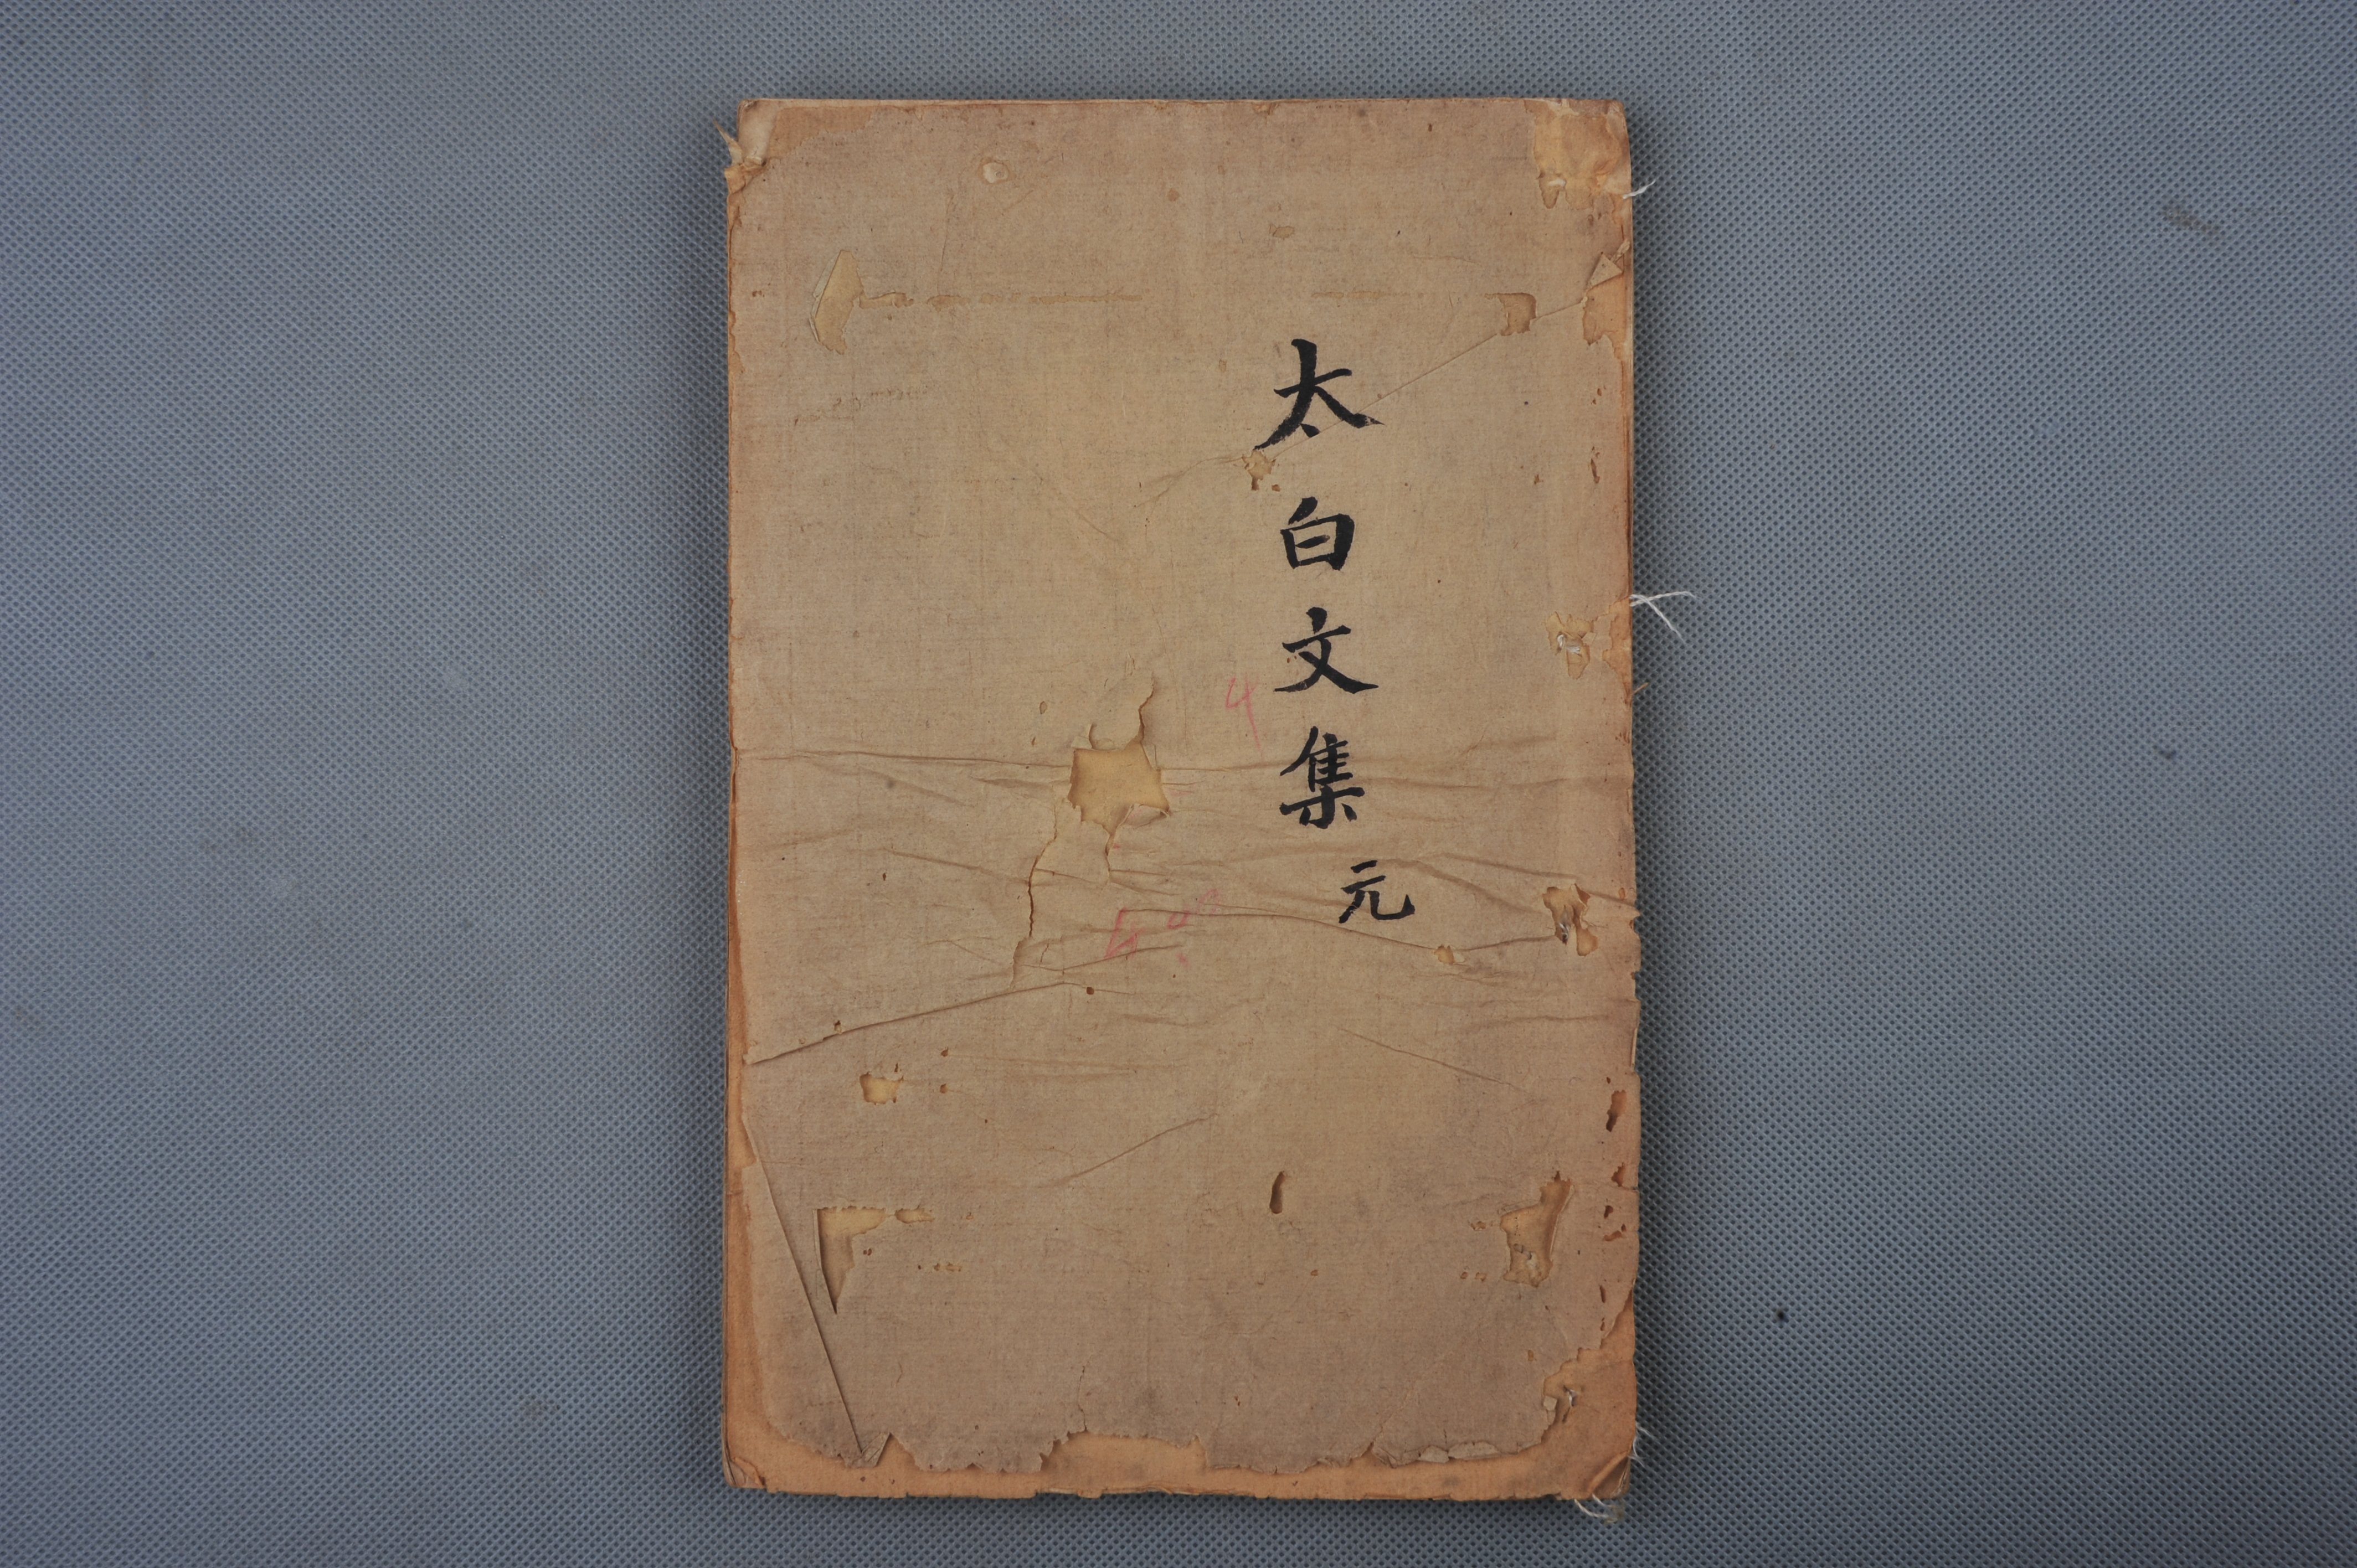 太白文集 元
4